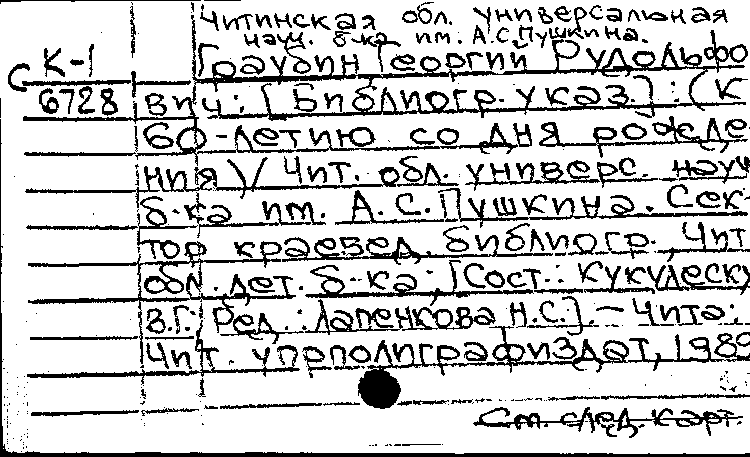 Читинская обл. универсальная
науч. б-ка им. А.С.Пушкина.
К-1 Граубин Георгий Рудольфо
6728 вич: [Библиогр. указ.] : (К
60-летию со дня рожде
ния)/ Чит. обл. универс. науч
б-ка им. А.С.Пушкина. Сек-
тор краевед. библиогр., Чит
обл. дет. б-ка; [Сост.: Кукулеску
В.Г; Ред.: Лапенкова Н.С.]. – Чита:
Чит. упрполиграфиздат, 1989
См. след. карт.